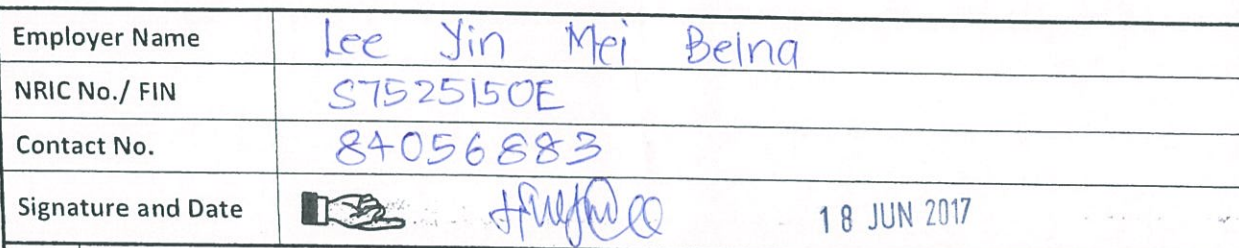 Employer Name Lee Yin Mei Belna
NRIC No./ FIN S7525150E
Contact No. 84056883
Signature and Date 18 JUN 2017